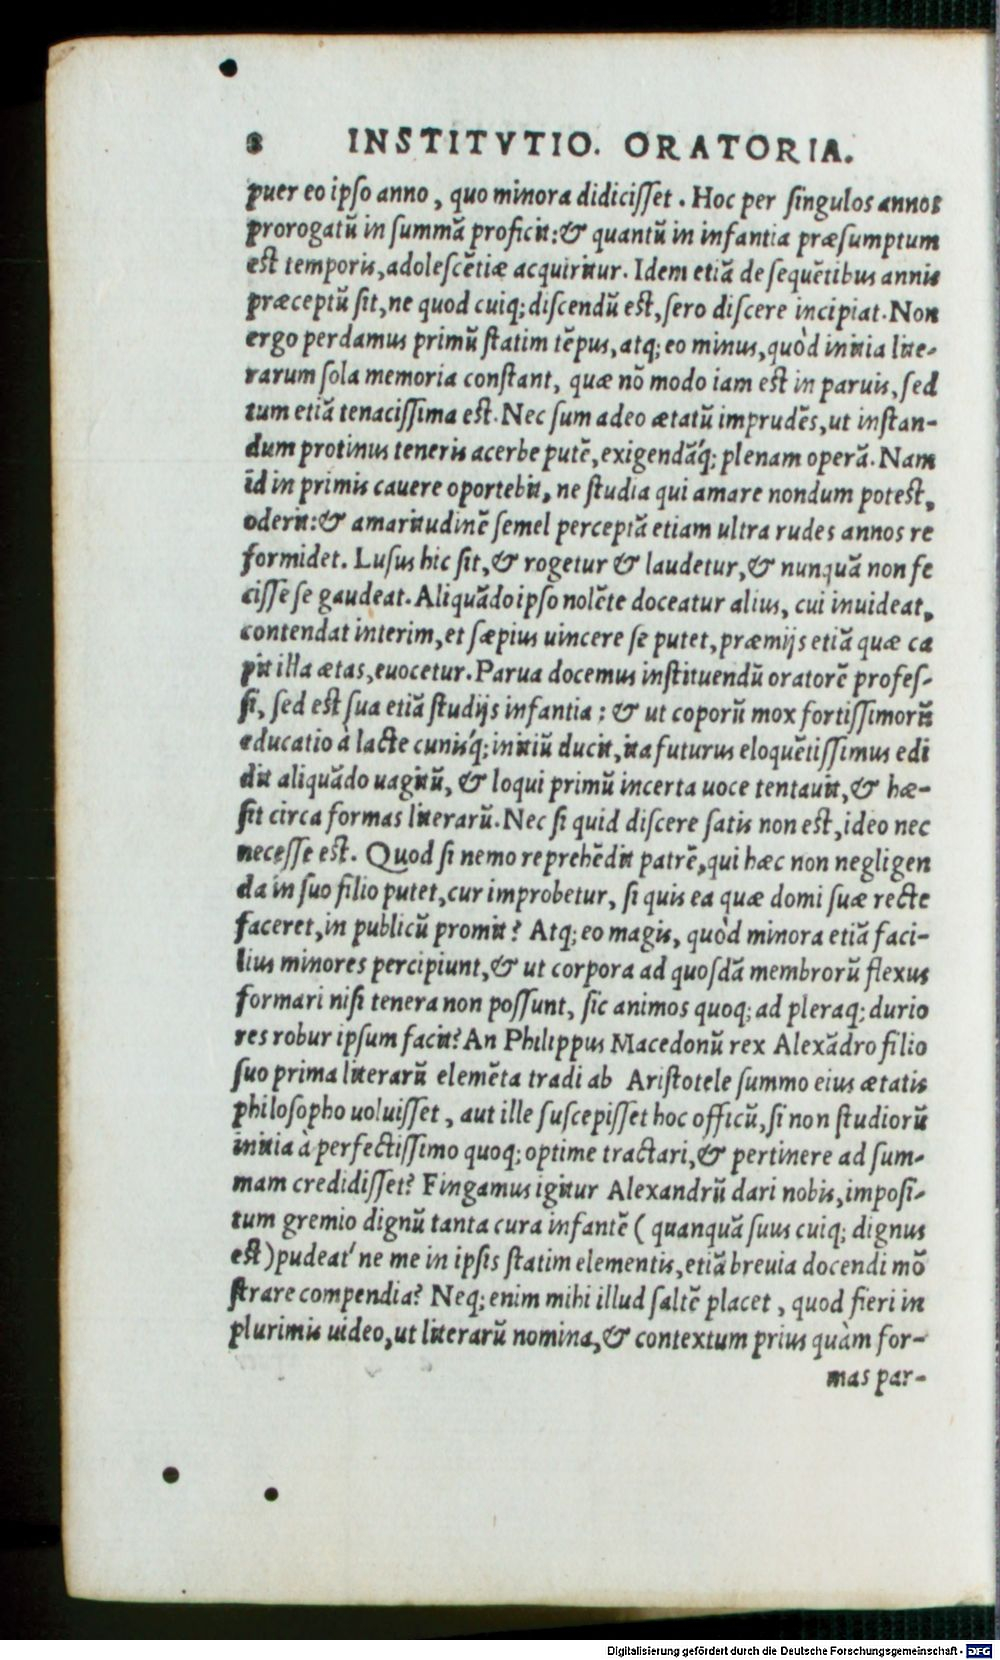 8 INSTITVTIO. ORATORIA.
puer eo ipso anno, quo minora didicisset. Hoc per singulos annos
prorogatũ in summã proficit:& quantũ in infantia præsumptum
est temporis, adolescẽtiæ acquiritur. Idem etiã de sequẽtibus annis
præceptũ sit, ne quod cuiq; discendũ est, sero discere incipiat. Non
ergo perdamus primũ statim tẽpus, atq; eo minus, quòd initia lite-
rarum sola memoria constant, quæ nõ modo iam est in paruis, sed
tum etiã tenacissima est. Nec sum adeo ætatũ imprudẽs, ut instan-
dum protinus teneris acerbe putẽ, exigendã'q; plenam operã. Nam
id in primis cauere oportebit, ne studia qui amare nondum potest,
oderit:& amaritudinẽ semel perceptã etiam ultra rudes annos re
formidet. Lusus hic sit, & rogetur & laudetur, & nunquã non fe
cisse se gaudeat. Aliquãdo ipso nolẽte doceatur alius, cui inuideat,
contendat interim, et sæpius uincere se putet, præmijs etiã quæ ca
pit illa ætas, euocetur. Parua docemus instituendũ oratorẽ profes-
si, sed est sua etiã studijs infantia: & ut coporũ mox fortissimorũ
educatio à lacte cunis'q; initiũ ducit, ita futurus eloquẽtissimus edi
dit aliquãdo uagitũ, & loqui primũ incerta uoce tentauit, & hæ-
sit circa formas literarũ. Nec si quid discere satis non est, ideo nec
necesse est. Quod si nemo reprehẽdit patrẽ, qui hæc non negligen
da in suo filio putet, cur improbetur, si quis ea quæ domi suæ recte
faceret, in publicũ promit? Atq; eo magis, quòd minora etiã faci-
lius minores percipiunt, & ut corpora ad quosdã membrorũ flexus
formari nisi tenera non possunt, sic animos quoq; ad pleraq; durio
res robur ipsum facit? An Philippus Macedonũ rex Alexãdro filio
suo prima literarũ elemẽta tradi ab Aristotele summo eius ætatis
philosopho uoluisset, aut ille suscepisset hoc officũ, si non studiorũ
initia à perfectissimo quoq; optime tractari, & pertinere ad sum-
mam credidisset? Fingamus igitur Alexandrũ dari nobis, imposi-
tum gremio dignũ tanta cura infantẽ (quanquã suus cuiq; dignus
est) pudeat' ne me in ipsis statim elementis, etiã breuia docendi mõ
strare compendia? Neq; enim mihi illud saltẽ placet, quod fieri in
plurimis uideo, ut literarũ nomina, & contextum prius quàm for-
mas par-
Digitalisierung gefördert durch die Deutsche Forschungsgemeinschaft - DFG